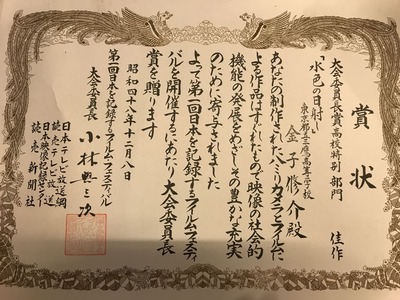 賞状
大会委員長賞高校特別部門 佳作
「水色の日射し」
東京都立三鷹高等学校
金子勝介殿
あなたの制作された八ミリカメラとフィルムに
よる作品はすぐれたもので映像の社会的
機能の発展をめざしその豊かな充実
のために寄与されました
よって第一回日本を記録するフィルムフェスティ
バルを開催するにあたり大会委員長
賞を贈ります
昭和四十八年十二月八日
第一回日本を記録するフィルムフェスティバル
大会委員長 小林與三次
日本テレビ放送網
読売テレビ放送
日本映像記録センター
読売新聞社